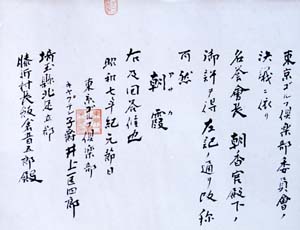 東京ゴルフ倶楽部委員會ノ
決議ニ依リ
名誉會長 朝香宮殿下ノ
御許ヲ得左記ノ通リ改称
可然
朝霞
アサカ
右及回答候也
昭和七年紀元節日
東京ゴルフ倶楽部
子爵 井上匡四郎
埼玉縣北足立郡
膝折村長
殿